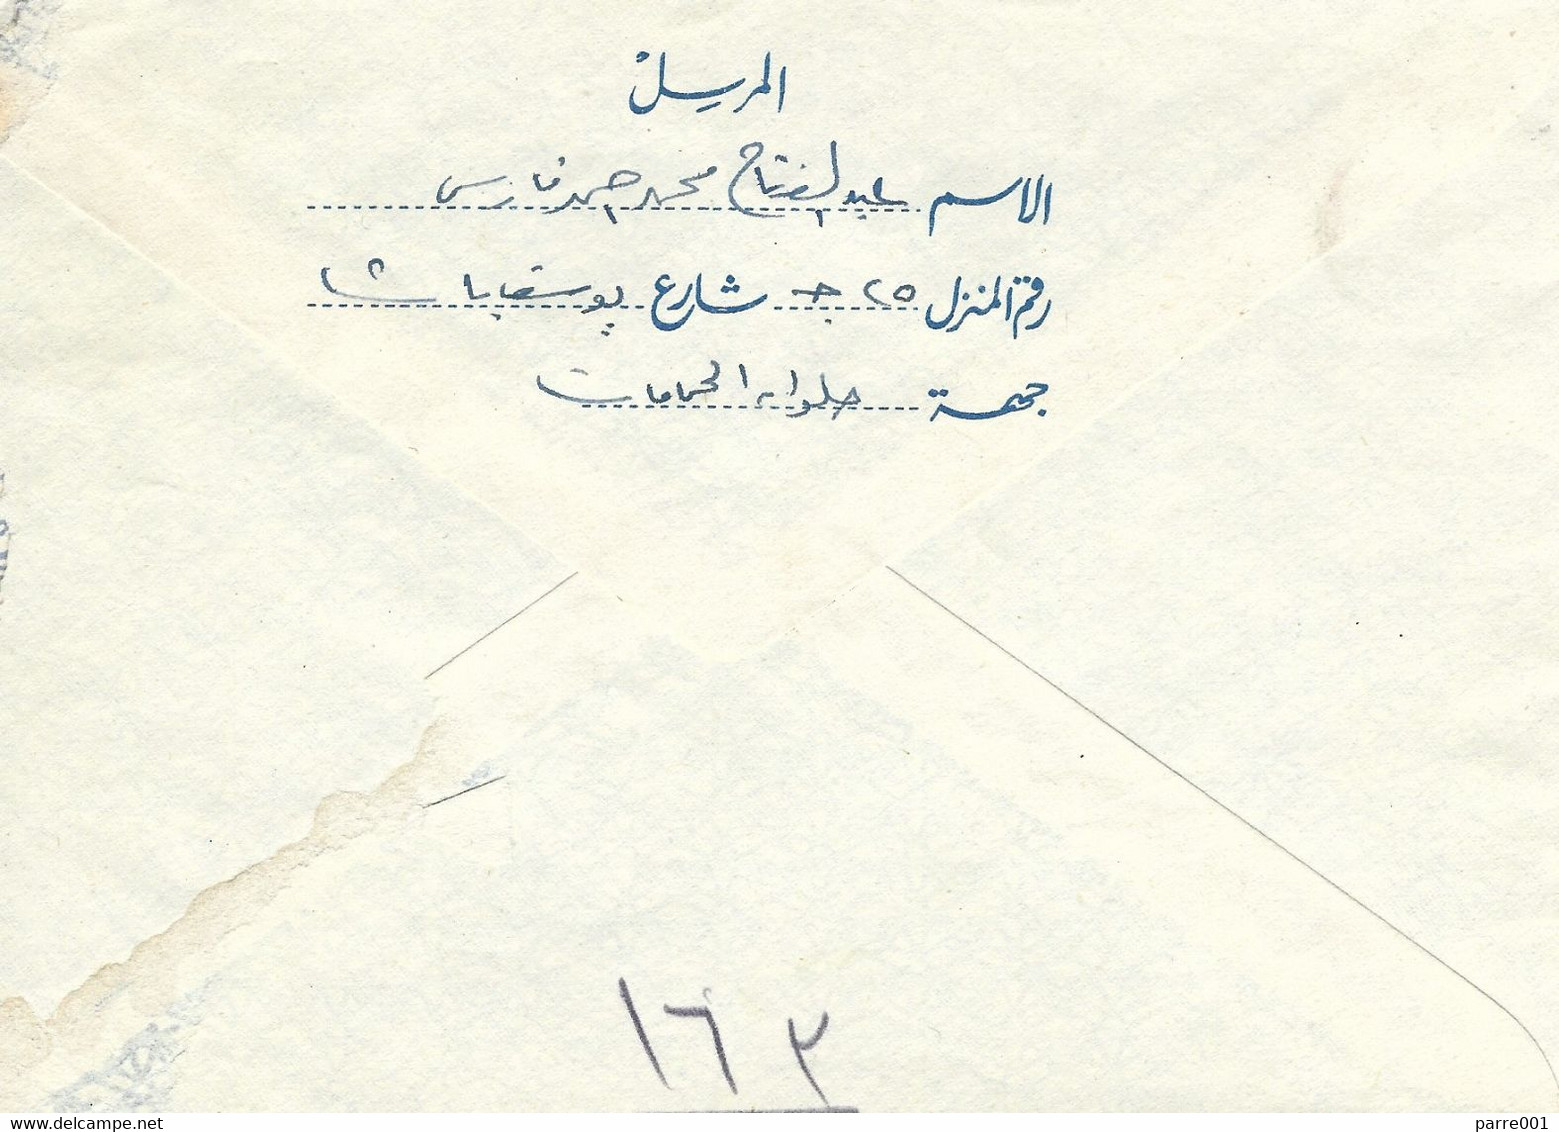 المرسل
الاسم عبد الفتاح محمد احمد فارس
رقم المنزل ٢٥ ج شارع باشا
جهة حلوان الحمامات
١٦٢
parre001